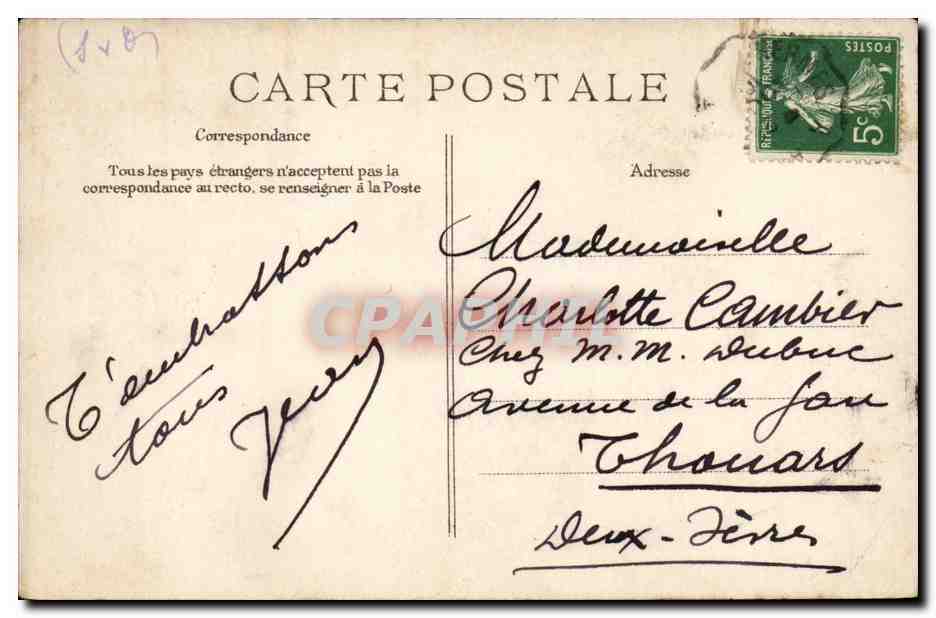 (S x D)
CARTE POSTALE
Correspondance
Tous les pays étrangers n'acceptent pas la
correspondance au recto, se renseigner à la Poste
T'embrassons
tous
Jean
POSTES
REPUBLIQUE FRANÇAISE
5c
Adresse
Mademoiselle
Charlotte Cambier
Chez M.M. Dubuc
Avenue de la Gare
Thouars
Deux-Sèvres
CPAPHIL